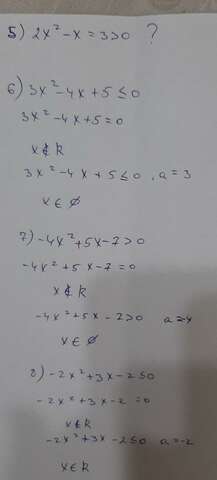 5) 2x² - x = 3 > 0 ?
6) 3x² - 4x + 5 ≤ 0
3x² - 4x + 5 = 0
x ∉ R
3x² - 4x + 5 ≤ 0, a = 3
x ∈ ∅
7) -4x² + 5x - 7 > 0
-4x² + 5x - 7 = 0
x ∉ R
-4x² + 5x - 7 > 0 a =
x ∈ ∅
8) -2x² + 3x - 2 ≤ 0
-2x² + 3x - 2 = 0
x ∉ R
-2x² + 3x - 2 ≤ 0 a = -2
x ∈ R